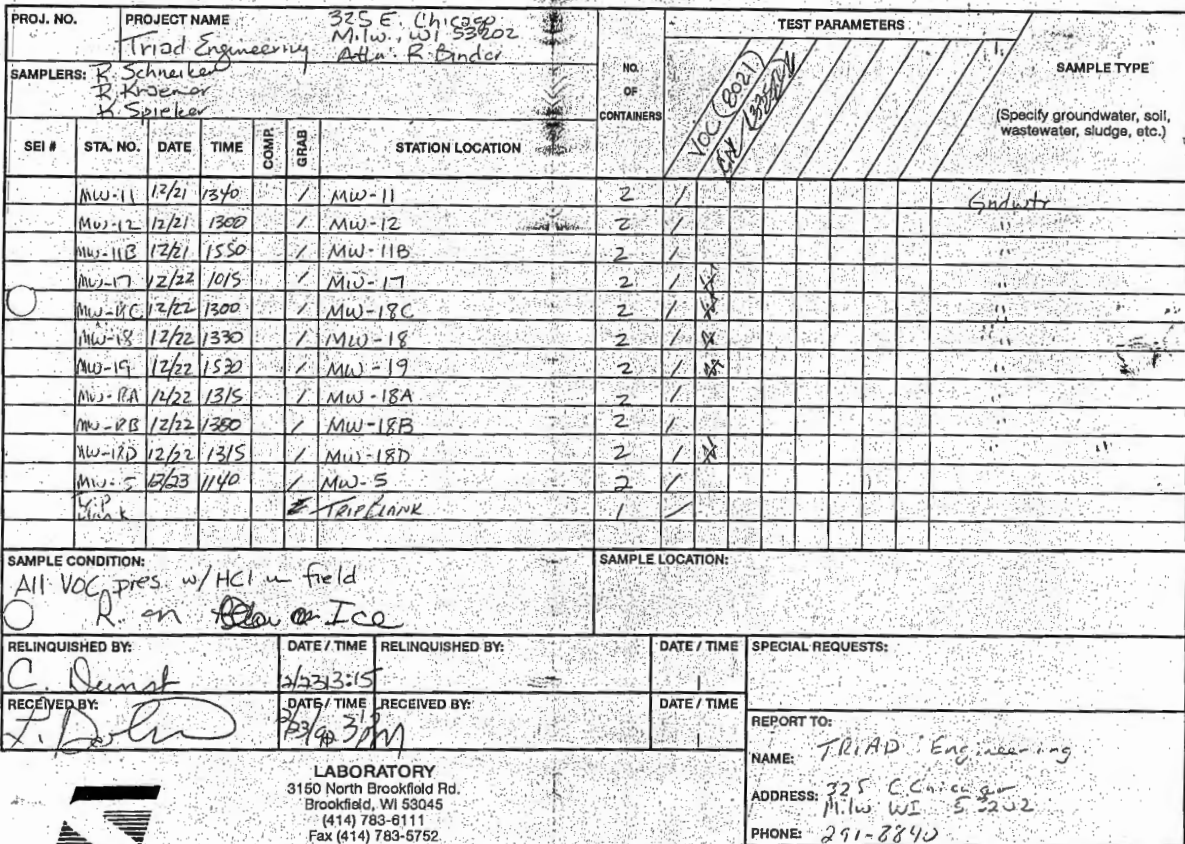 PROJ. NO. PROJECT NAME 325 E. Chicago
Milw., WI 53202
Triad Engineering Attn: R. Binder
TEST PARAMETERS
SAMPLERS: R. Schneiker
R. Kraemer
K. Spieker
NO. OF CONTAINERS
VOC (8021)
SAMPLE TYPE
(Specify groundwater, soil, wastewater, sludge, etc.)
SEI # STA. NO. DATE TIME COMP. GRAB STATION LOCATION
MW-11 12/21 1340 / MW-11 2 / Gndwtr
MW-12 12/21 1300 / MW-12 2 / "
MW-11B 12/21 1550 / MW-11B 2 / "
MW-17 12/22 1015 / MW-17 2 / "
MW-18C 12/22 1300 / MW-18C 2 / "
MW-18 12/22 1330 / MW-18 2 / "
MW-19 12/22 1530 / MW-19 2 / "
MW-18A 12/22 1315 / MW-18A 2 / "
MW-18B 12/22 / MW-18B 2 / "
MW-18D 12/22 1315 / MW-18D 2 / "
MW-5 12/23 1140 / MW-5 2 /
Trip Blank TRIP BLANK 1 /
SAMPLE CONDITION:
All VOC pres. w/HCl in field
R. on Ice
SAMPLE LOCATION:
RELINQUISHED BY: DATE / TIME RELINQUISHED BY: DATE / TIME SPECIAL REQUESTS:
C. 12/23 3:15
RECEIVED BY: DATE / TIME RECEIVED BY: DATE / TIME
REPORT TO:
NAME: TRIAD Engineering
ADDRESS: 325 E. Chicago
Milw WI 53202
PHONE: 291-8840
LABORATORY
3150 North Brookfield Rd.
Brookfield, WI 53045
(414) 783-6111
Fax (414) 783-5752